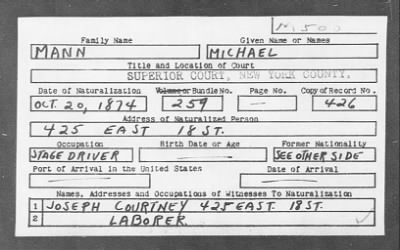 M-500
Family Name Given Name or Names
MANN MICHAEL
Title and Location of Court
SUPERIOR COURT, NEW YORK COUNTY.
Date of Naturalization Volume or Bundle No. Page No. Copy of Record No.
OCT. 20, 1874 259 — 426
Address of Naturalized Person
425 EAST 18 ST.
Occupation Birth Date or Age Former Nationality
STAGE DRIVER SEE OTHER SIDE
Port of Arrival in the United States Date of Arrival
Names, Addresses and Occupations of Witnesses To Naturalization
1 JOSEPH COURTNEY 425 EAST 18 ST.
2 LABORER